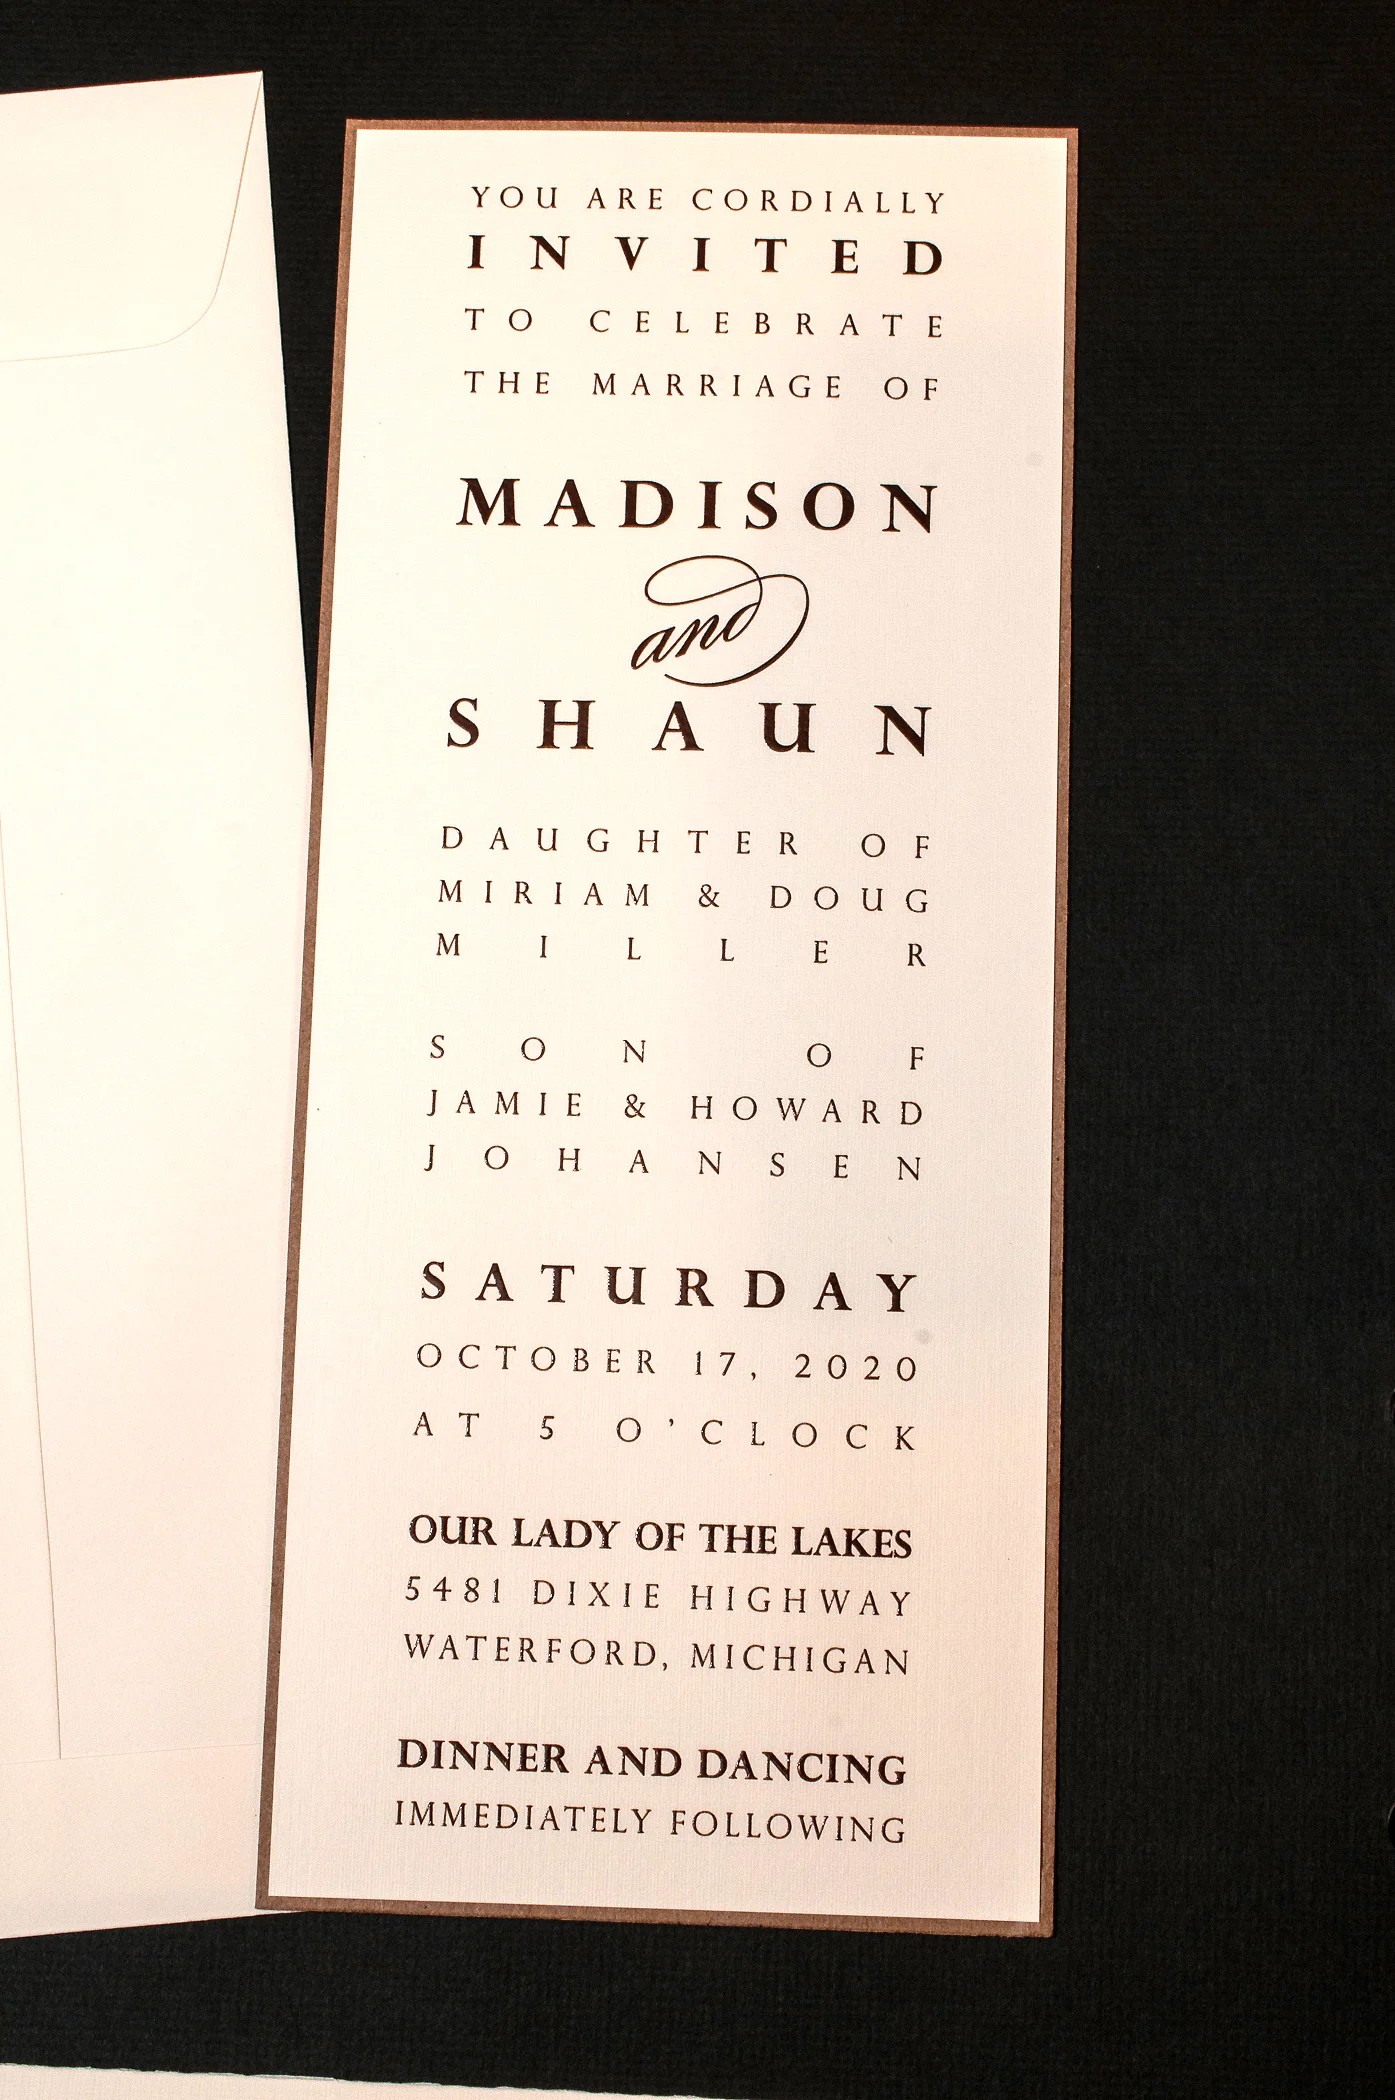 YOU ARE CORDIALLY
INVITED
TO CELEBRATE
THE MARRIAGE OF
MADISON
and
SHAUN
DAUGHTER OF
MIRIAM & DOUG
MILLER
SON OF
JAMIE & HOWARD
JOHANSEN
SATURDAY
OCTOBER 17, 2020
AT 5 O'CLOCK
OUR LADY OF THE LAKES
5481 DIXIE HIGHWAY
WATERFORD, MICHIGAN
DINNER AND DANCING
IMMEDIATELY FOLLOWING